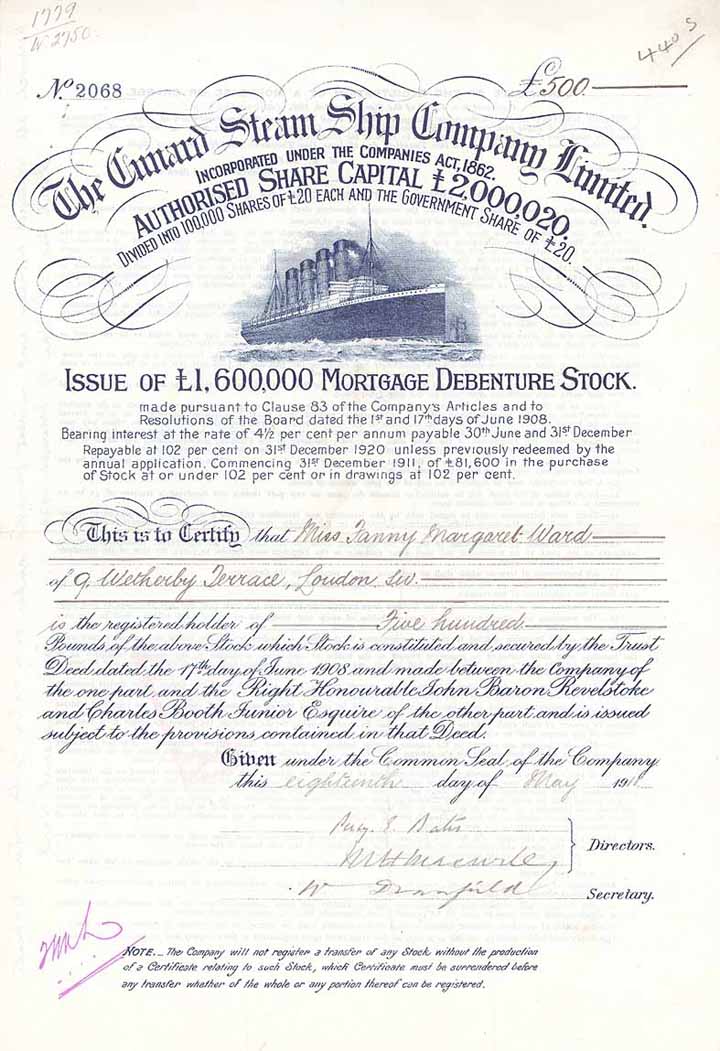 1779
W 2750.
440 5
No. 2068
£500
The Cunard Steam Ship Company Limited.
INCORPORATED UNDER THE COMPANIES ACT, 1862.
AUTHORISED SHARE CAPITAL £2,000,020.
DIVIDED INTO 100,000 SHARES OF £20 EACH AND THE GOVERNMENT SHARE OF £20.
ISSUE OF £1,600,000 MORTGAGE DEBENTURE STOCK.
made pursuant to Clause 83 of the Company's Articles and to
Resolutions of the Board dated the 1st and 17th days of June 1908.
Bearing interest at the rate of 4½ per cent per annum payable 30th June and 31st December
Repayable at 102 per cent on 31st December 1920 unless previously redeemed by the
annual application. Commencing 31st December 1911, of £81,600 in the purchase
of Stock at or under 102 per cent or in drawings at 102 per cent.
This is to Certify that Miss Fanny Margaret Ward
of 9, Wetherby Terrace, London. SW.
is the registered holder of Five hundred
Pounds of the above Stock which Stock is constituted and secured by the Trust
Deed dated the 17th day of June 1908 and made between the Company of
the one part and the Right Honourable John Baron Revelstoke
and Charles Booth Junior Esquire of the other part and is issued
subject to the provisions contained in that Deed.
Given under the Common Seal of the Company
this eighteenth day of May 1911
Percy E. Bates
Directors.
W Dranfield
Secretary.
NOTE._ The Company will not register a transfer of any Stock without the production
of a Certificate relating to such Stock, which Certificate must be surrendered before
any transfer whether of the whole or any portion thereof can be registered.